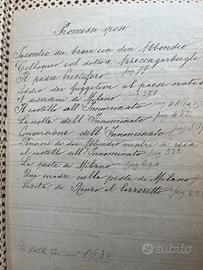 Promessi sposi
Incontro dei bravi con don Abbondio
Colloquio col dottore Azzeccagarbugli
Il padre Cristoforo
Addio dei fuggitivi al paese nato
I disordini di Milano
Il castello dell'Innominato pag
La notte dell'Innominato pag
Conversione dell'Innominato pag
Pensieri di don Abbondio mentre si reca
al castello dell'Innominato pag
La peste di Milano pag
Una madre nella peste di Milano
Visita di Renzo al lazzeretto
La peste fu nel 1630
Subito